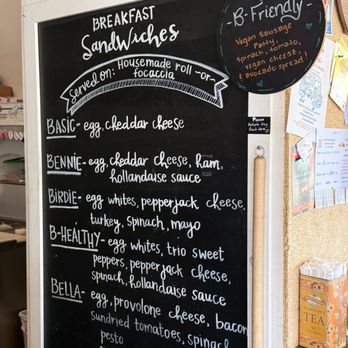 BREAKFAST
SANDWICHES
SERVED ON: HOUSEMADE ROLL -OR-
FOCACCIA
BASIC- egg, cheddar cheese
BENNIE- egg, cheddar cheese, ham,
hollandaise sauce
BIRDIE- egg whites, pepperjack cheese,
turkey, spinach, mayo
B-HEALTHY- egg whites, trio sweet
peppers, pepperjack cheese,
spinach, hollandaise sauce
BELLA- egg, provolone cheese, bacon
sundried tomatoes, spinach
pesto
-B-Friendly-
Vegan Sausage
Patty,
spinach, tomato,
vegan cheese
& avocado spread!
Please
TEA